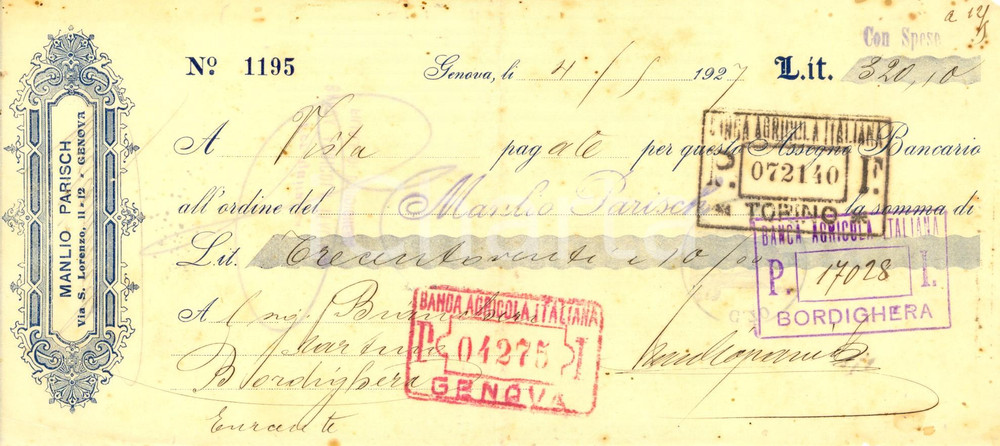 MANLIO PARISCH
Via S. Lorenzo, 11-12 - GENOVA
a 12/5
Con Spese
Nº 1195 Genova, li 4/5 1927 Lit. 320,10
A Vista pagate per questo Assegno Bancario
all'ordine del Manlio Parisch la somma di
Lit. Trecentoventi e 10/00
A
Bordighera
BANCA AGRICOLA ITALIANA
P. 072140 F.
TORINO
BANCA AGRICOLA ITALIANA
P. 17028 I.
BORDIGHERA
BANCA AGRICOLA ITALIANA
P 04275 I
GENOVA